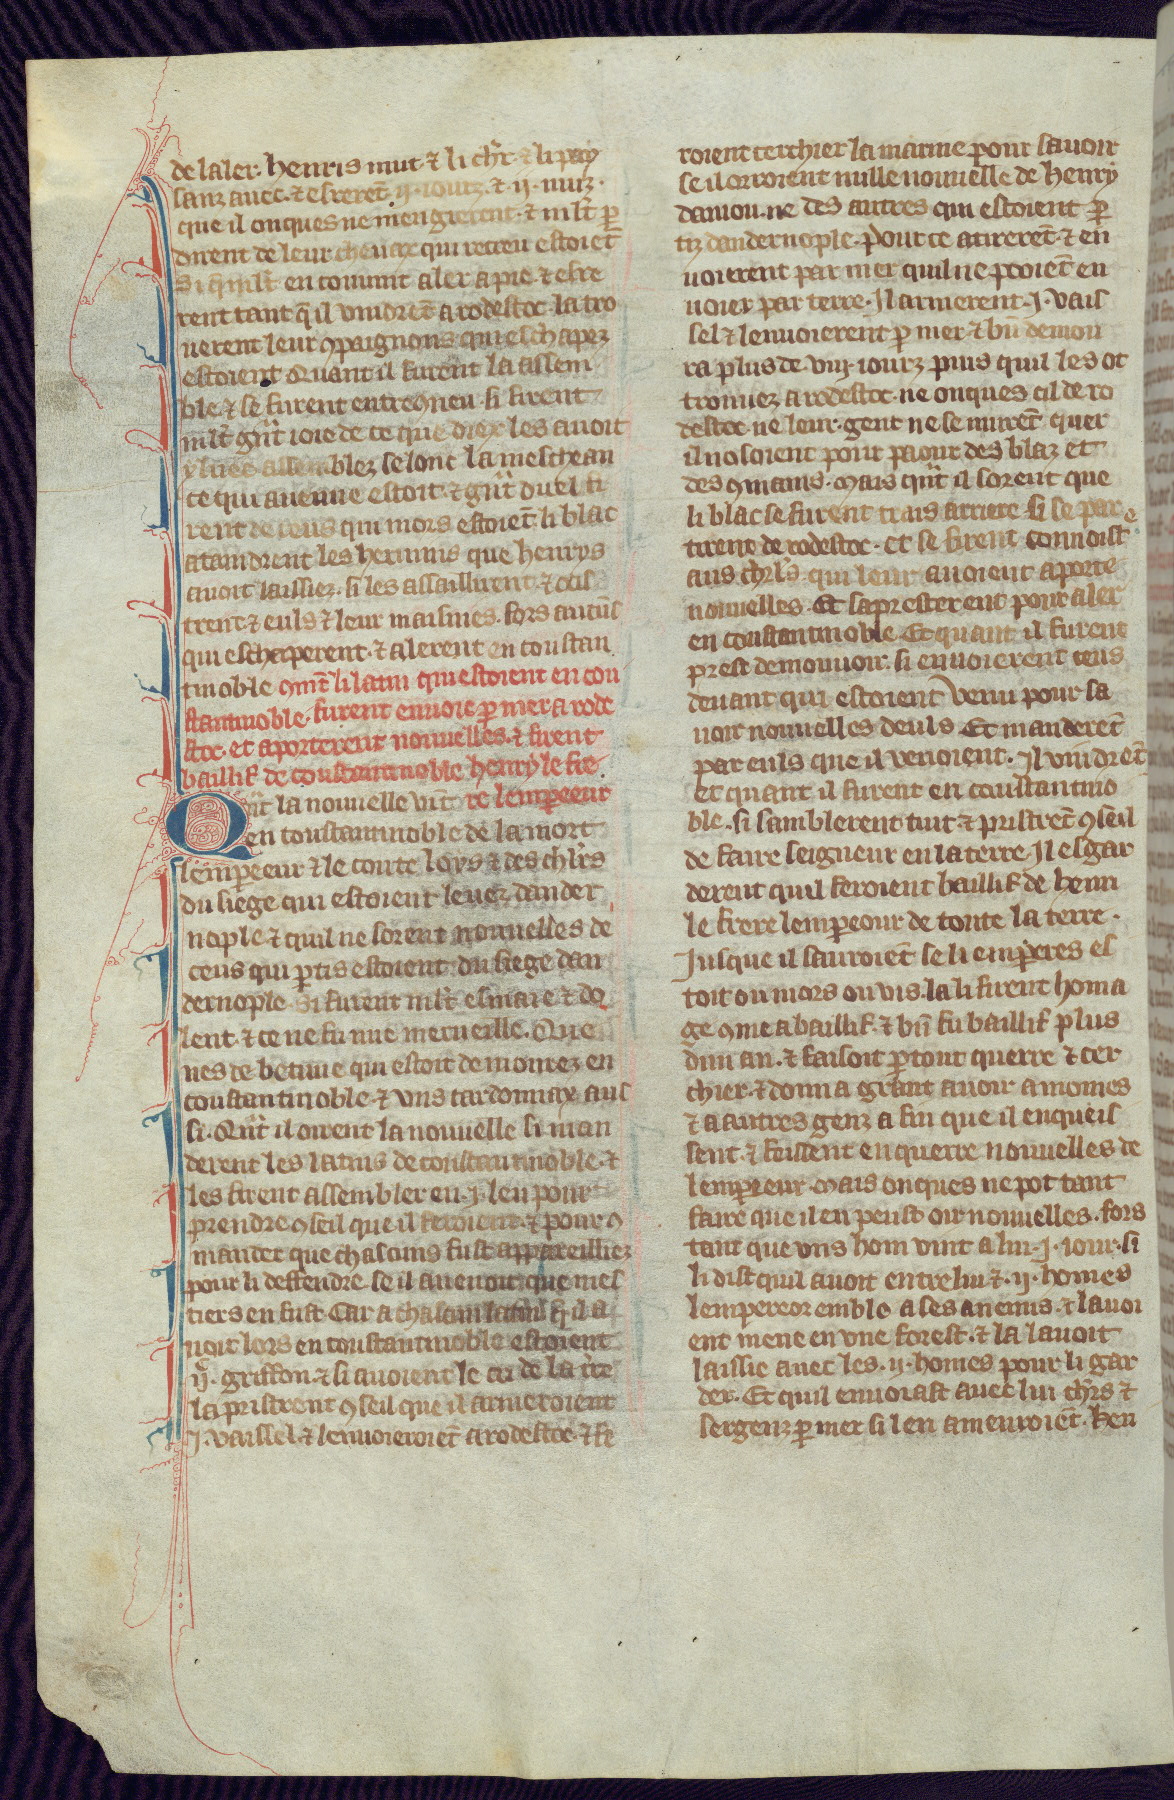 de laler. henris mut ⁊ li chr̃. ⁊ li pay
sanz auec. ⁊ esrerẽt .ij. iourz. ⁊ .ij. nuiz.
que il onques ne mengierent. ⁊ ml̃t ꝑ
dirent de leur cheuax qui recreu estoiẽt
Si qͥl ml̃t en conuint aler a pie. ⁊ esre
rent tant q̃ il vindrẽt a rodestoc. la tro
uerent leur ꝯpaignons qui eschapez
estoient Quant il furent la assem
ble. ⁊ se furent entreꝯneu. si firent
ml̃t gñt ioie de ce que diex les auoit
yluec assemblez selonc la meschean
ce qui auenue estoit. ⁊ gñt duel fi
rent de ceus qui mors estoiẽt. li blac
ataindrent les hermins que henrys
auoit laissiez. si les assaillirent. ⁊ ocis
trent. ⁊ euls ⁊ leur maisnies. fors aucũs
qui eschaperent. ⁊ alerent en coustan
tinoble ꝯmẽt li latin qui estoient en con
stantinoble. furent enuoie ꝑ mer a rode
stoc. et aporterent nouuelles. ⁊ firent
baillif de coustantinoble henry le fre
Qñt la nouuelle vĩt re lempeeur
en coustantinoble de la mort
lempeeur ⁊ le conte loys ⁊ des chl̃rs
du siege qui estoient leuez dander
nople. ⁊ quil ne sorent nouuelles de
ceus qui ꝑtis estoient du siege dan
dernople. Si furent ml̃t esmaie ⁊ do
lent. ⁊ ce ne fu mie merueille. Que
nes de betune qui estoit demourez en
coustantinoble. ⁊ vns cardonnax aus
si. Qñt il oirent la nouuelle si man
derent les latins de coustantinoble. ⁊
les firent assembler en .j. leu pour
prendre ꝯseil que il feroient. ⁊ pour ꝯ
mander que chascuns fust appareilliez
pour li deffendre. se il auenoit que mes
tiers en fust. Car a chascun latin q̃ il a
uoit lors en coustantinoble estoient
.ij. griffon. ⁊ si auoient le cri de la cite
la pristrent ꝯseil que il armeroient
.j. vaissel. ⁊ lenuoieroiẽt a rodestoc. ⁊ fe
roient cerchier la marine pour sauoir
se il orroient nulle nouuelle de henry
daniou. ne des autres qui estoient ꝑ
tiz dandernople. Pour ce atirerẽt. ⁊ en
uoierent par mer quil ne pooiẽt en
uoier par terre. Il armerent .j. vais
sel ⁊ lenuoierent ꝑ mer. ⁊ bñ demou
ra plus de .viij. iourz puis quil les ot
trouuez a rodestoc. ne onques cil de ro
destoc. ne leur gent ne se murẽt quer
il nosoient pour paour des blaz et
des ꝯmains. Mais qñt il sorent que
li blac se furent trais arriere si se par
tirent de rodestoc. et se firent connoist
aus chl̃rs qui leur auoient aporte
nouuelles. Et sapresterent pour aler
en coustantinoble. Et quant il furent
prest de mouuoir. si enuoierent ceus
deuant qui estoient venu pour sa
uoir nouuelles deuls Et manderẽt
par euls que il venoient. Il vindrẽt
et quant il furent en coustantino
ble. si samblerent tuit. ⁊ pristrẽt ꝯseil
de faire seigneur en la terre. Il esgar
derent quil feroient baillif de henri
le frere lempeour de toute la terre.
Jusque il sauroiẽt se li emperes es
toit ou mors ou vis. la li firent homa
ge ꝯme a baillif. ⁊ bñ fu baillif plus
dun an. ⁊ faisoit ꝑtout querre ⁊ cer
chier. ⁊ donna grant auoir a moines
⁊ a autres genz a fin que il enqueis
sent. ⁊ feissent enquerre nouuelles de
lempereur. Mais onques ne pot tant
faire que il en peust oir nouuelles. fors
tant que vns hom vint a lui .j. iour. si
li dist quil auoit entre lui ⁊ .ij. homes
lempereor emble a ses anemis. ⁊ lauoi
ent mene en vne forest. ⁊ la lauoit
laissie auec les .ij. homes pour li gar
der. Et quil enuoiast auec lui chl̃rs ⁊
sergenz ꝑ mer si len amenroiẽt. hen